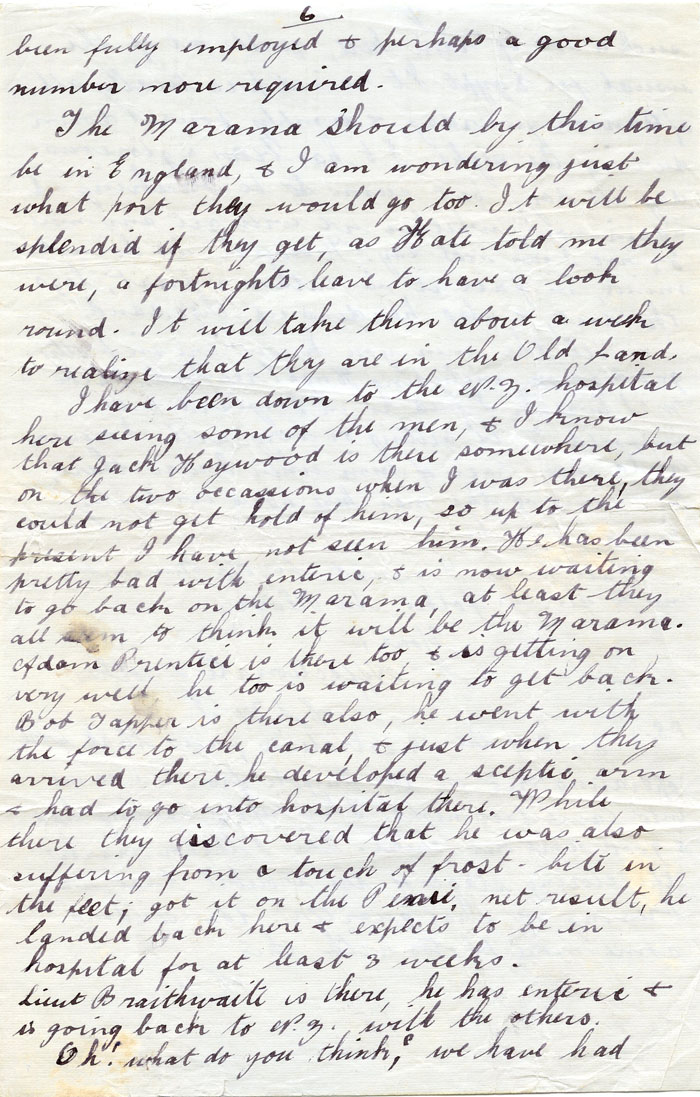 6
been fully employed & perhaps a good
number more required.
The Marama should by this time
be in England, & I am wondering just
what port they would go too. It will be
splendid if they get, as Kate told me they
were, a fortnights leave to have a look
round. It will take them about a week
to realize that they are in the Old Land.
I have been down to the N.Z. hospital
here seeing some of the men, & I know
that Jack Heywood is there somewhere, but
on the two occassions when I was there, they
could not get hold of him, so up to the
present I have not seen him. He has been
pretty bad with enteric, & is now waiting
to go back on the Marama, at least they
all seem to think it will be the Marama.
Adam Prentice is there too, & is getting on
very well he too is waiting to get back.
Bob Tapper is there also, he went with
the force to the canal, & just when they
arrived there he developed a sceptic arm
& had to go into hospital there. While
there they discovered that he was also
suffering from a touch of frost-bite in
the feet; got it on the Penni, net result, he
landed back here & expects to be in
hospital for at least 3 weeks.
Lieut Braithwaite is there, he has enteric &
is going back to N.Z. with the others.
Oh! what do you think,? we have had